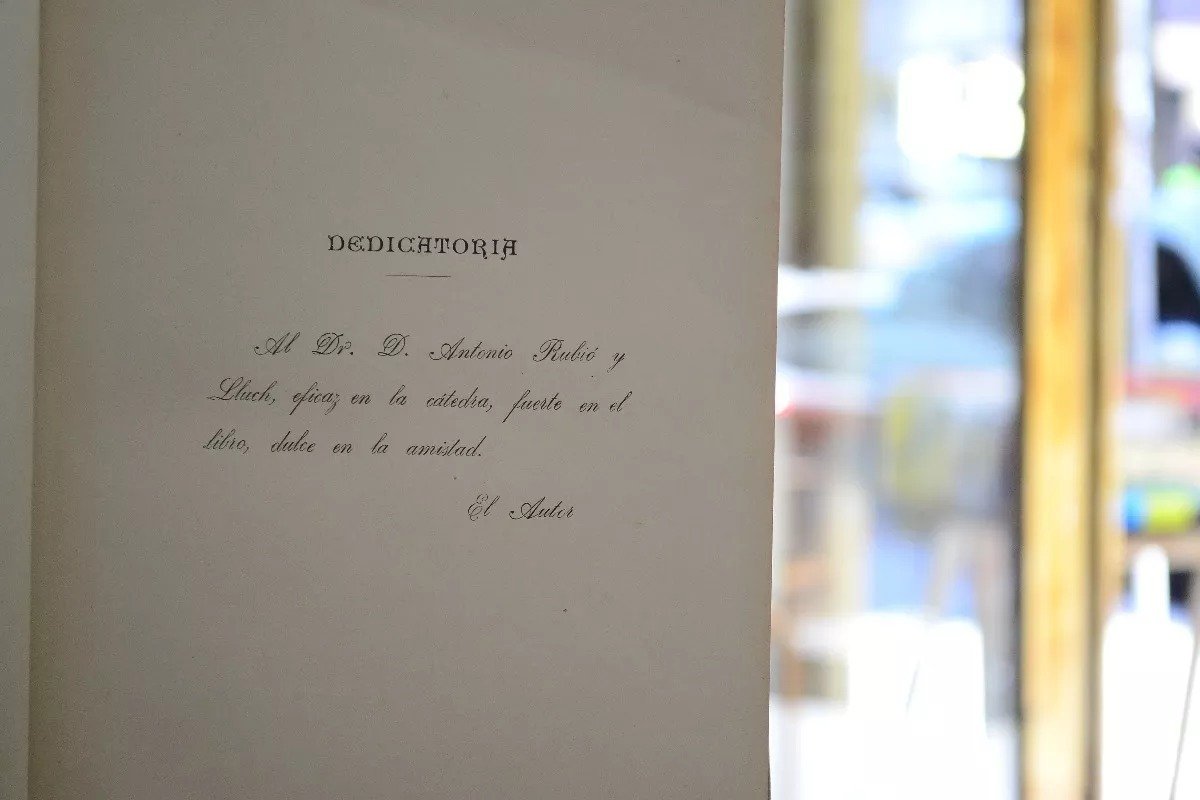 DEDICATORIA
Al Dr. D. Antonio Rubió y
Lluch, eficaz en la cátedra, fuerte en el
libro, dulce en la amistad.
El Autor